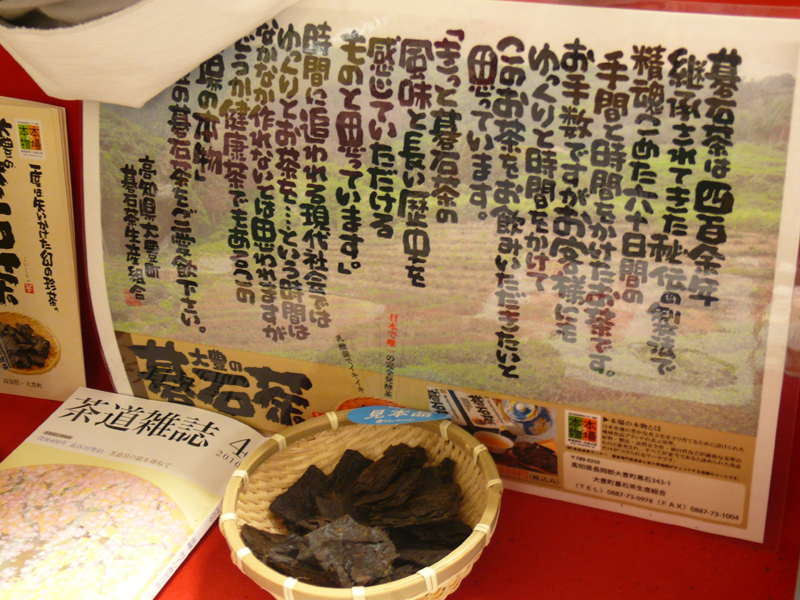 碁石茶は四百余年
継承されてきた秘伝の製法で
精魂こめた六十日間の
手間と時間をかけたお茶です。
お手数ですがお客様にも
ゆっくりと時間をかけて
このお茶をお飲みいただきたいと
思っています。
「きっと碁石茶の
風味と長い歴史を
感じていただける
ものと思っています。」
時間に追われる現代社会では
ゆっくりとお茶を…という時間は
なかなか作れないとは思われますが
どうか健康茶でもあるこの
場の本物
の碁石茶をご愛飲下さい。
高知県大豊町
碁石茶生産組合
大豊の
碁石茶
日本で唯一の完全発酵茶
乳酸菌でイキイキ
見本品
(税込み)
本場の本物
▶本場の本物とは
〒789-0205
高知県長岡郡大豊町黒石343-1
大豊町碁石茶生産組合
(TEL) 0887-73-0978 (FAX) 0887-73-1004
本場の本物
大豊の
一度は失いかけた幻の珍茶。
高知県・大豊町
茶道雑誌
4
2010